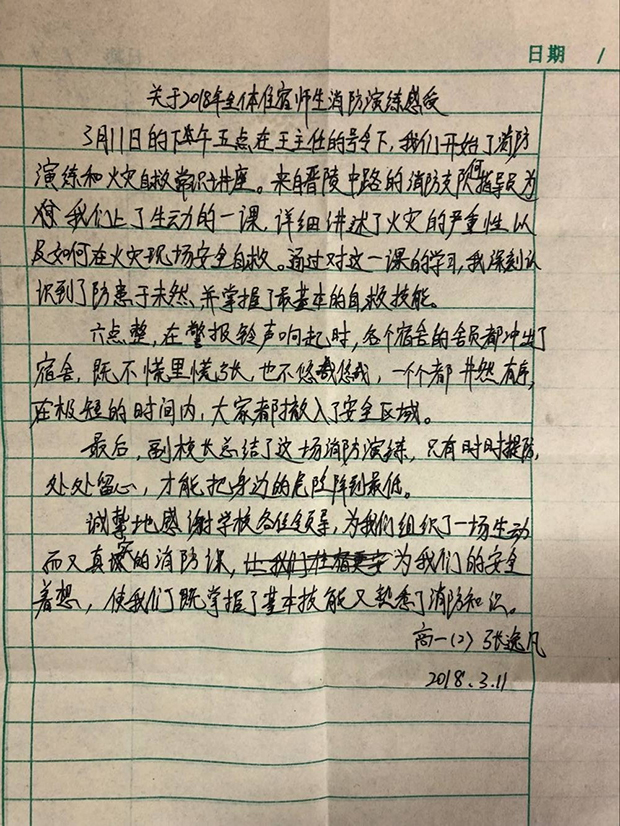 日期 /
关于2018年全体住宿师生消防演练感受
3月11日的下午五点在王主任的号令下,我们开始了消防
演练和火灾自救常识讲座。来自晋陵中路的消防支队何指导员为
我们上了生动的一课,详细讲述了火灾的严重性以
及如何在火灾现场安全自救。通过对这一课的学习,我深刻认
识到了防患于未然,并掌握了最基本的自救技能。
六点整,在警报铃声响起时,各个宿舍的舍员都冲出了
宿舍,既不慌里慌张,也不悠哉悠哉,一个个都井然有序,
在极短的时间内,大家都撤入了安全区域。
最后,副校长总结了这场消防演练,只有时时提防,
处处留心,才能把身边的危险降到最低。
诚挚地感谢学校各位领导,为我们组织了一场生动
而又真实的消防课,为我们的安全
着想,使我们既掌握了基本技能又熟悉了消防知识。
高一(2) 张逸凡
2018.3.11